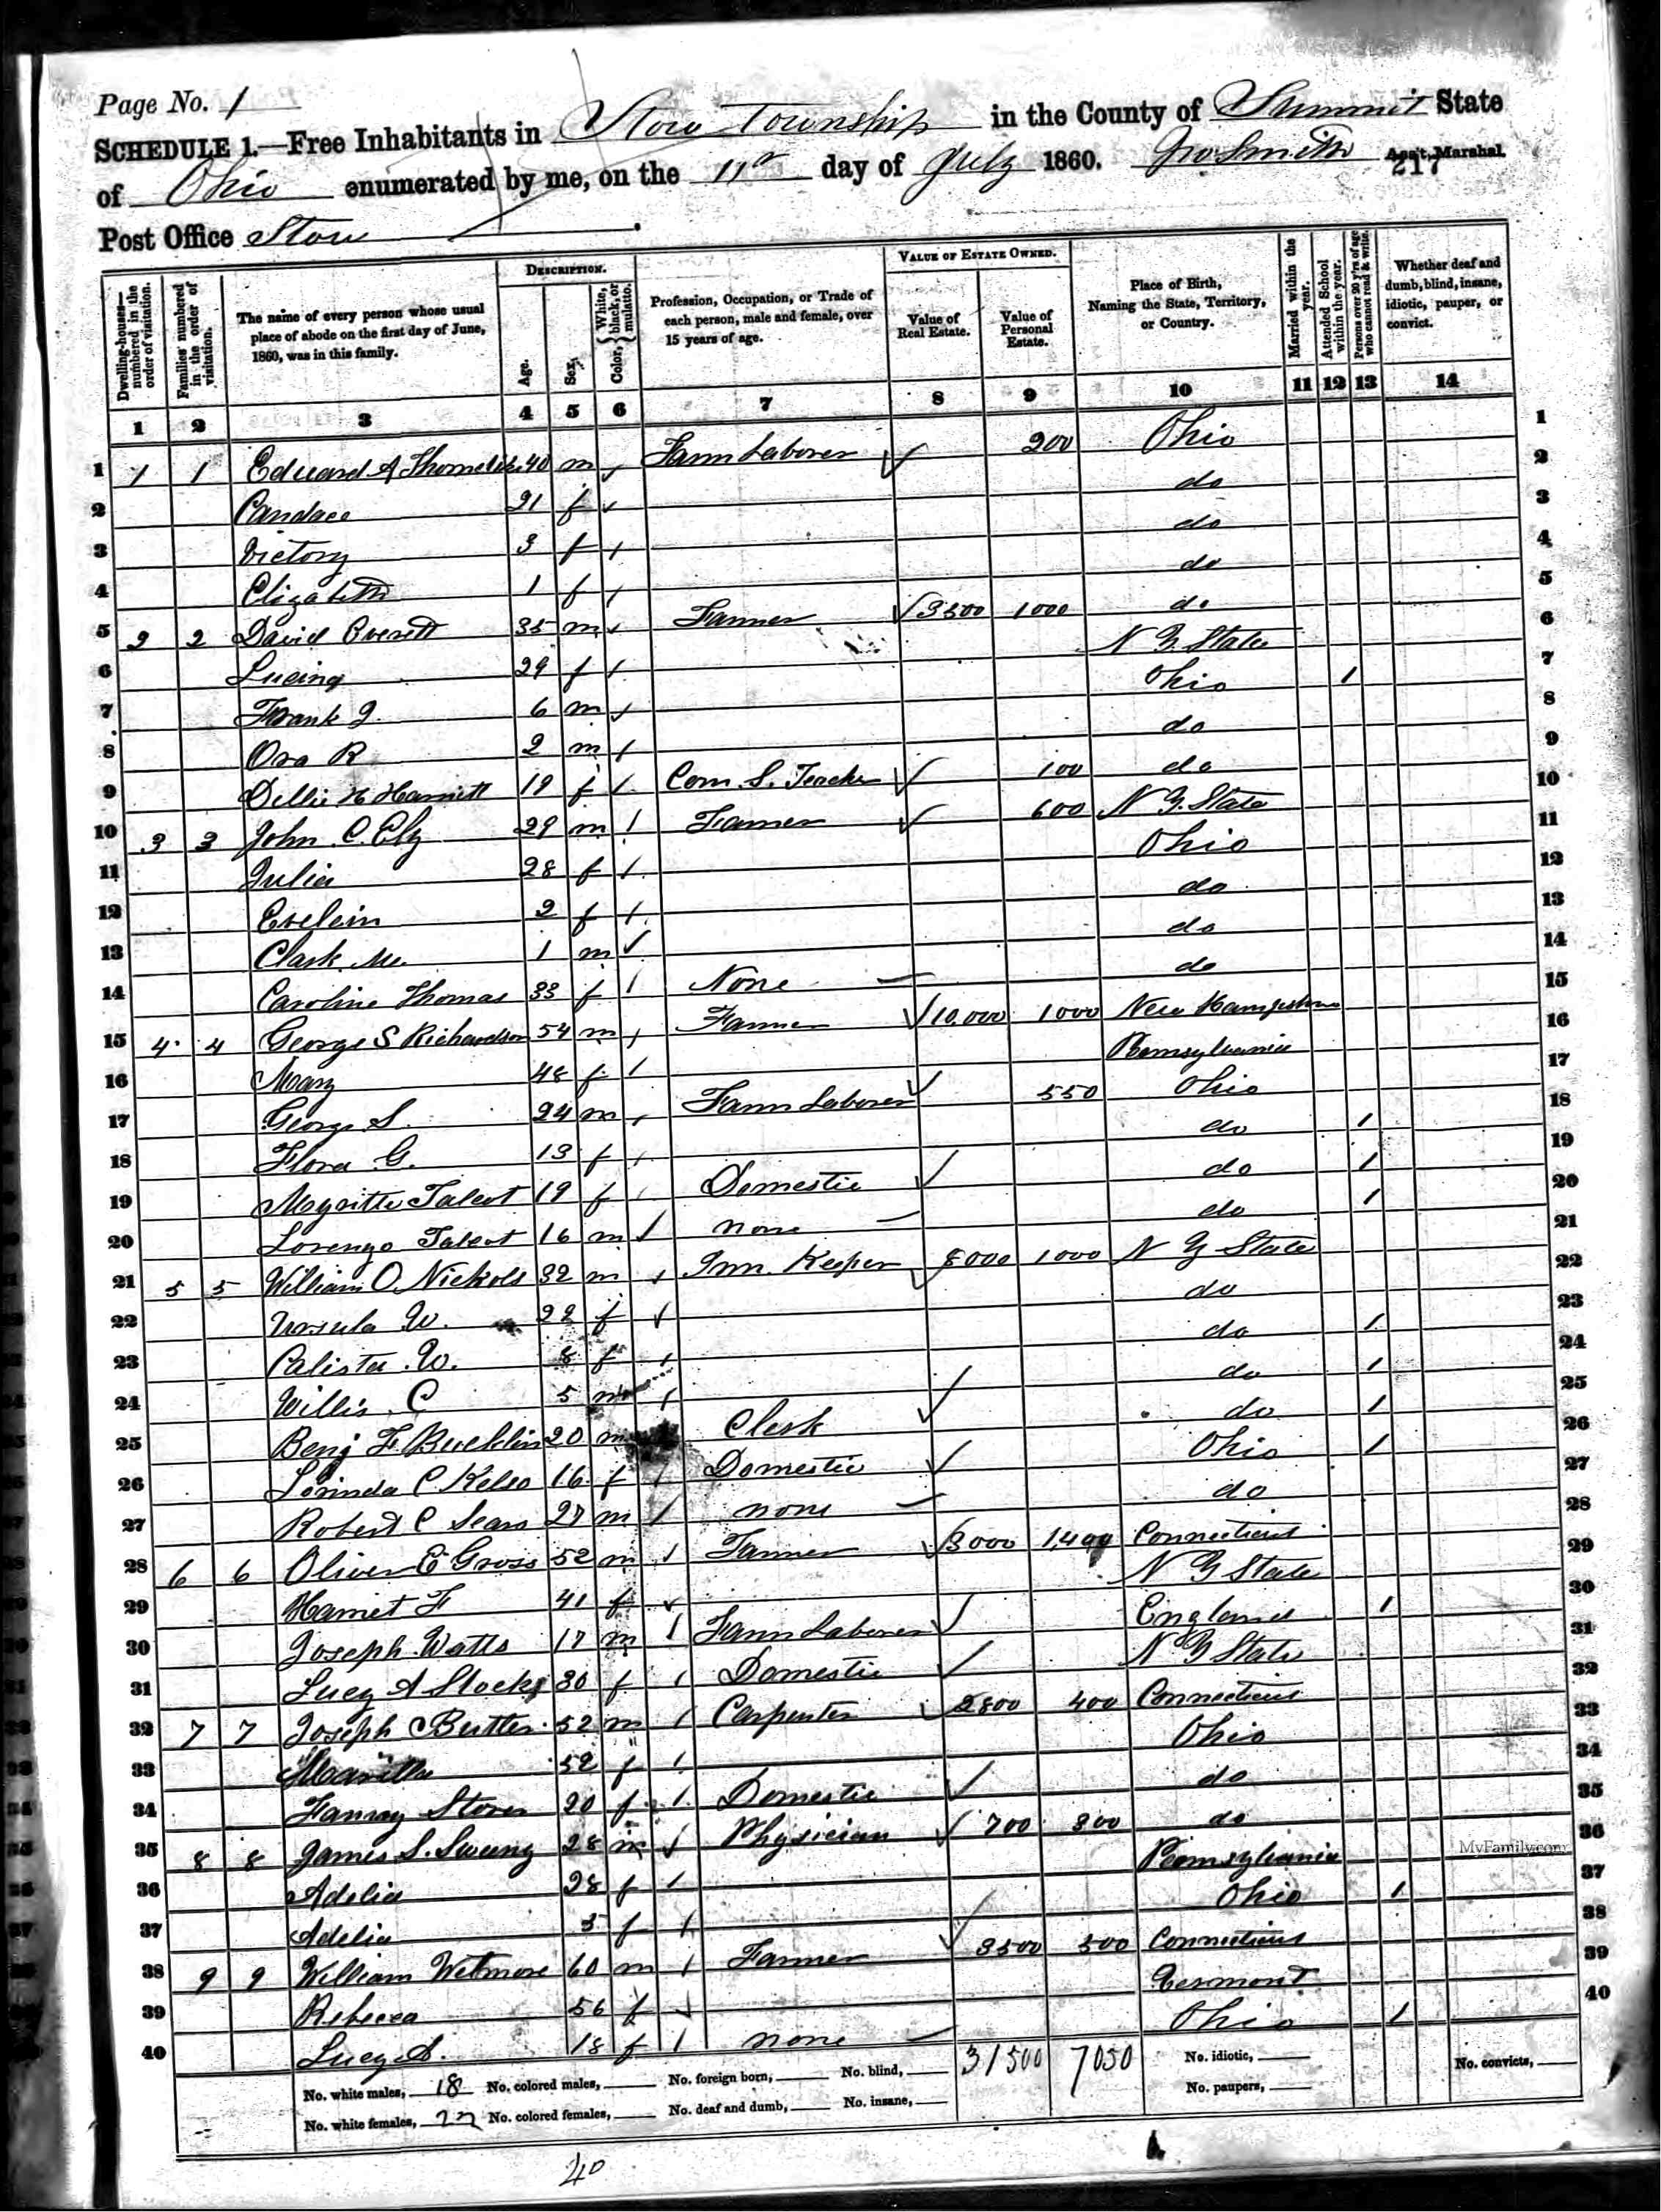 Page No. 1
SCHEDULE 1.—Free Inhabitants in Stow Township in the County of Summit State
of Ohio enumerated by me, on the 11th day of July 1860. Jno Smith Ass't Marshal.
217
Post Office Stow
Dwelling-houses—numbered in the order of visitation.
Families numbered in the order of visitation.
The name of every person whose usual place of abode on the first day of June, 1860, was in this family.
DESCRIPTION.
Age.
Sex.
Color, White, black, or mulatto.
Profession, Occupation, or Trade of each person, male and female, over 15 years of age.
VALUE OF ESTATE OWNED.
Value of Real Estate.
Value of Personal Estate.
Place of Birth, Naming the State, Territory, or Country.
Married within the year.
Attended School within the year.
Persons over 20 y'rs of age who cannot read & write.
Whether deaf and dumb, blind, insane, idiotic, pauper, or convict.
1 2 3 4 5 6 7 8 9 10 11 12 13 14
1 1 1 Edward A 40 m Farm Laborer 200 Ohio 1
2 Candace 21 f do 2
3 Victory 3 f do 3
4 Elizabeth 1 f do 4
5 2 2 David Everett 35 m Farmer 3500 1000 do 5
6 29 f N Y. State 6
7 Frank J. 6 m Ohio 1 7
8 Ora R 2 m do 8
9 Dellie H 19 f Com. S. Teacher 100 do 9
10 3 3 John C. Ely 29 m Farmer 600 N Y. State 10
11 Julia 28 f Ohio 11
12 Evelein 2 f do 12
13 Clark M. 1 m do 13
14 Caroline Thomas 33 f None do 14
15 4 4 George S Richardson 54 m Farmer 10,000 1000 New Hampshire 15
16 Mary 48 f Pennsylvania 16
17 George S. 24 m Farm Laborer 550 Ohio 17
18 Flora G. 13 f do 1 18
19 Talcot 19 f Domestic do 1 19
20 Lorenzo Talcot 16 m none do 1 20
21 5 5 William O. Nickols 32 m Inn Keeper 8000 1000 N Y State 21
22 Ursula W. 22 f do 22
23 Calista W. 8 f do 1 23
24 Willis C 5 m do 1 24
25 Benj F Bucklin 20 m Clerk do 1 25
26 Lorinda C Kelso 16 f Domestic Ohio 1 26
27 Robert C Sears 27 m none do 27
28 6 6 Oliver E Gross 52 m Farmer 3000 1,400 Connecticut 28
29 Harriet F 41 f N Y State 29
30 Joseph Watts 17 m Farm Laborer England 1 30
31 Lucy A 30 f Domestic N Y State 31
32 7 7 Joseph Butler 52 m Carpenter 2800 400 Connecticut 32
33 52 f Ohio 33
34 Fanny 20 f Domestic do 34
35 8 8 James S. 28 m Physician 700 300 do 35
36 Adelia 28 f Pennsylvania 36
37 Adelia 5 f Ohio 1 37
38 9 9 William Wetmore 60 m Farmer 3500 500 Connecticut 38
39 Rebecca 56 f Vermont 39
40 Lucy A. 18 f none Ohio 1 40
No. white males, 18 No. colored males, No. foreign born, No. blind, 31500 7050 No. idiotic, No. convicts,
No. white females, 22 No. colored females, No. deaf and dumb, No. insane, No. paupers,
40
MyFamily.com